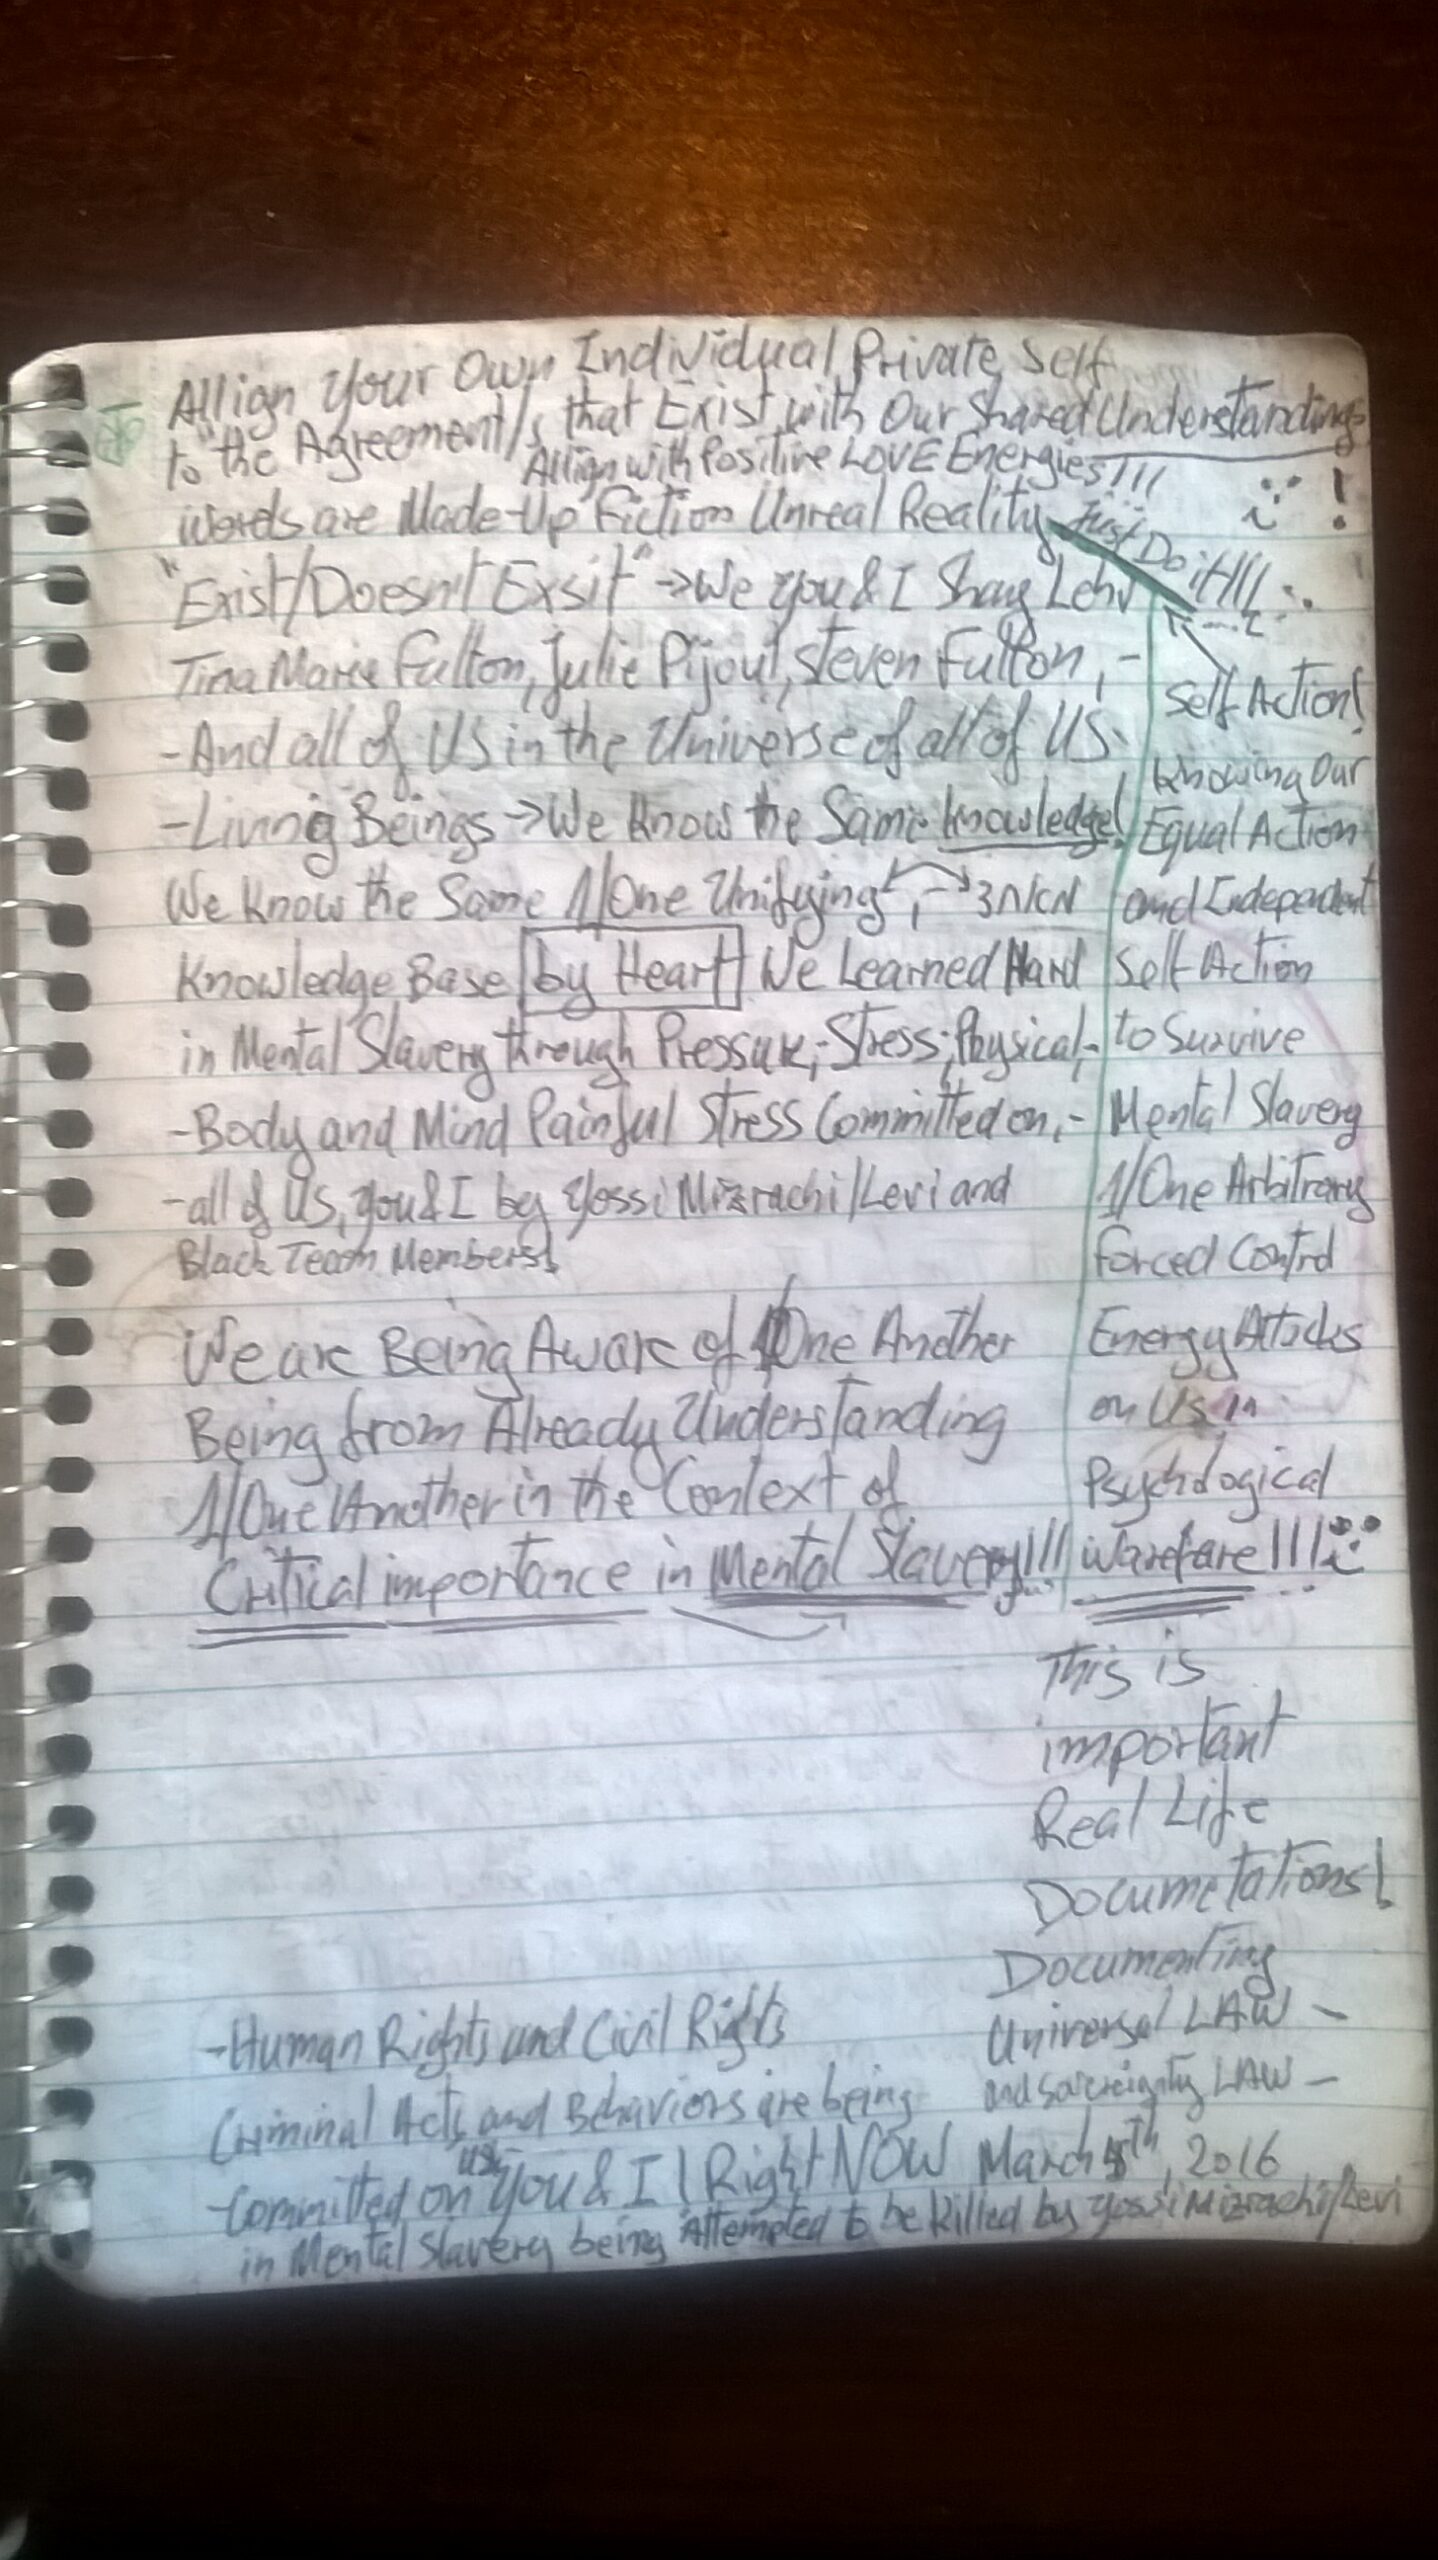 Allign Your Own Individual Private Self
to "the Agreement/s that Exist with Our Shared Understandings
Allign with Positive LOVE Energies!!!
Words are Made-Up Fiction Unreal Reality
Just Do it!!!
"Exist/Doesn't Exsit" →We You & I Shay Lehv
Tina Marie Fulton, Julie Pijoul, Steven Fulton, -
-And all of US in the Universe of all of US.
-Living Beings →We Know the Same knowledge!
We Know the Same 1/One Unifying, -
Knowledge Base by Heart We Learned Hard
in Mental Slavery through Pressure,-Stress;Physical,-
-Body and Mind Painful Stress Committed on,-
-all of Us, You & I by Yossi Mizrachi/Levi and
Black Team Members!
We are Being Aware of 1/One Another
Being from Already Understanding
1/One Another in the Context of
Critical importance in Mental Slavery!!!
Self Action!
Knowing Our
Equal Action
and Independent
Self Action
to Survive
Mental Slavery
1/One Arbitrary
Forced Control
Energy Attacks
on Us in
Psychological
Warefare!!!
This is
important
Real Life
Documetations!
Documenting
Universal LAW -
and Sovereignty LAW -
-Human Rights and Civil Rights
Criminal Acts and Behaviors are being
-Committed on You & I! Right NOW March 5th, 2016
in Mental Slavery being Attempted to be killed by Yossi Mizrachi/Levi